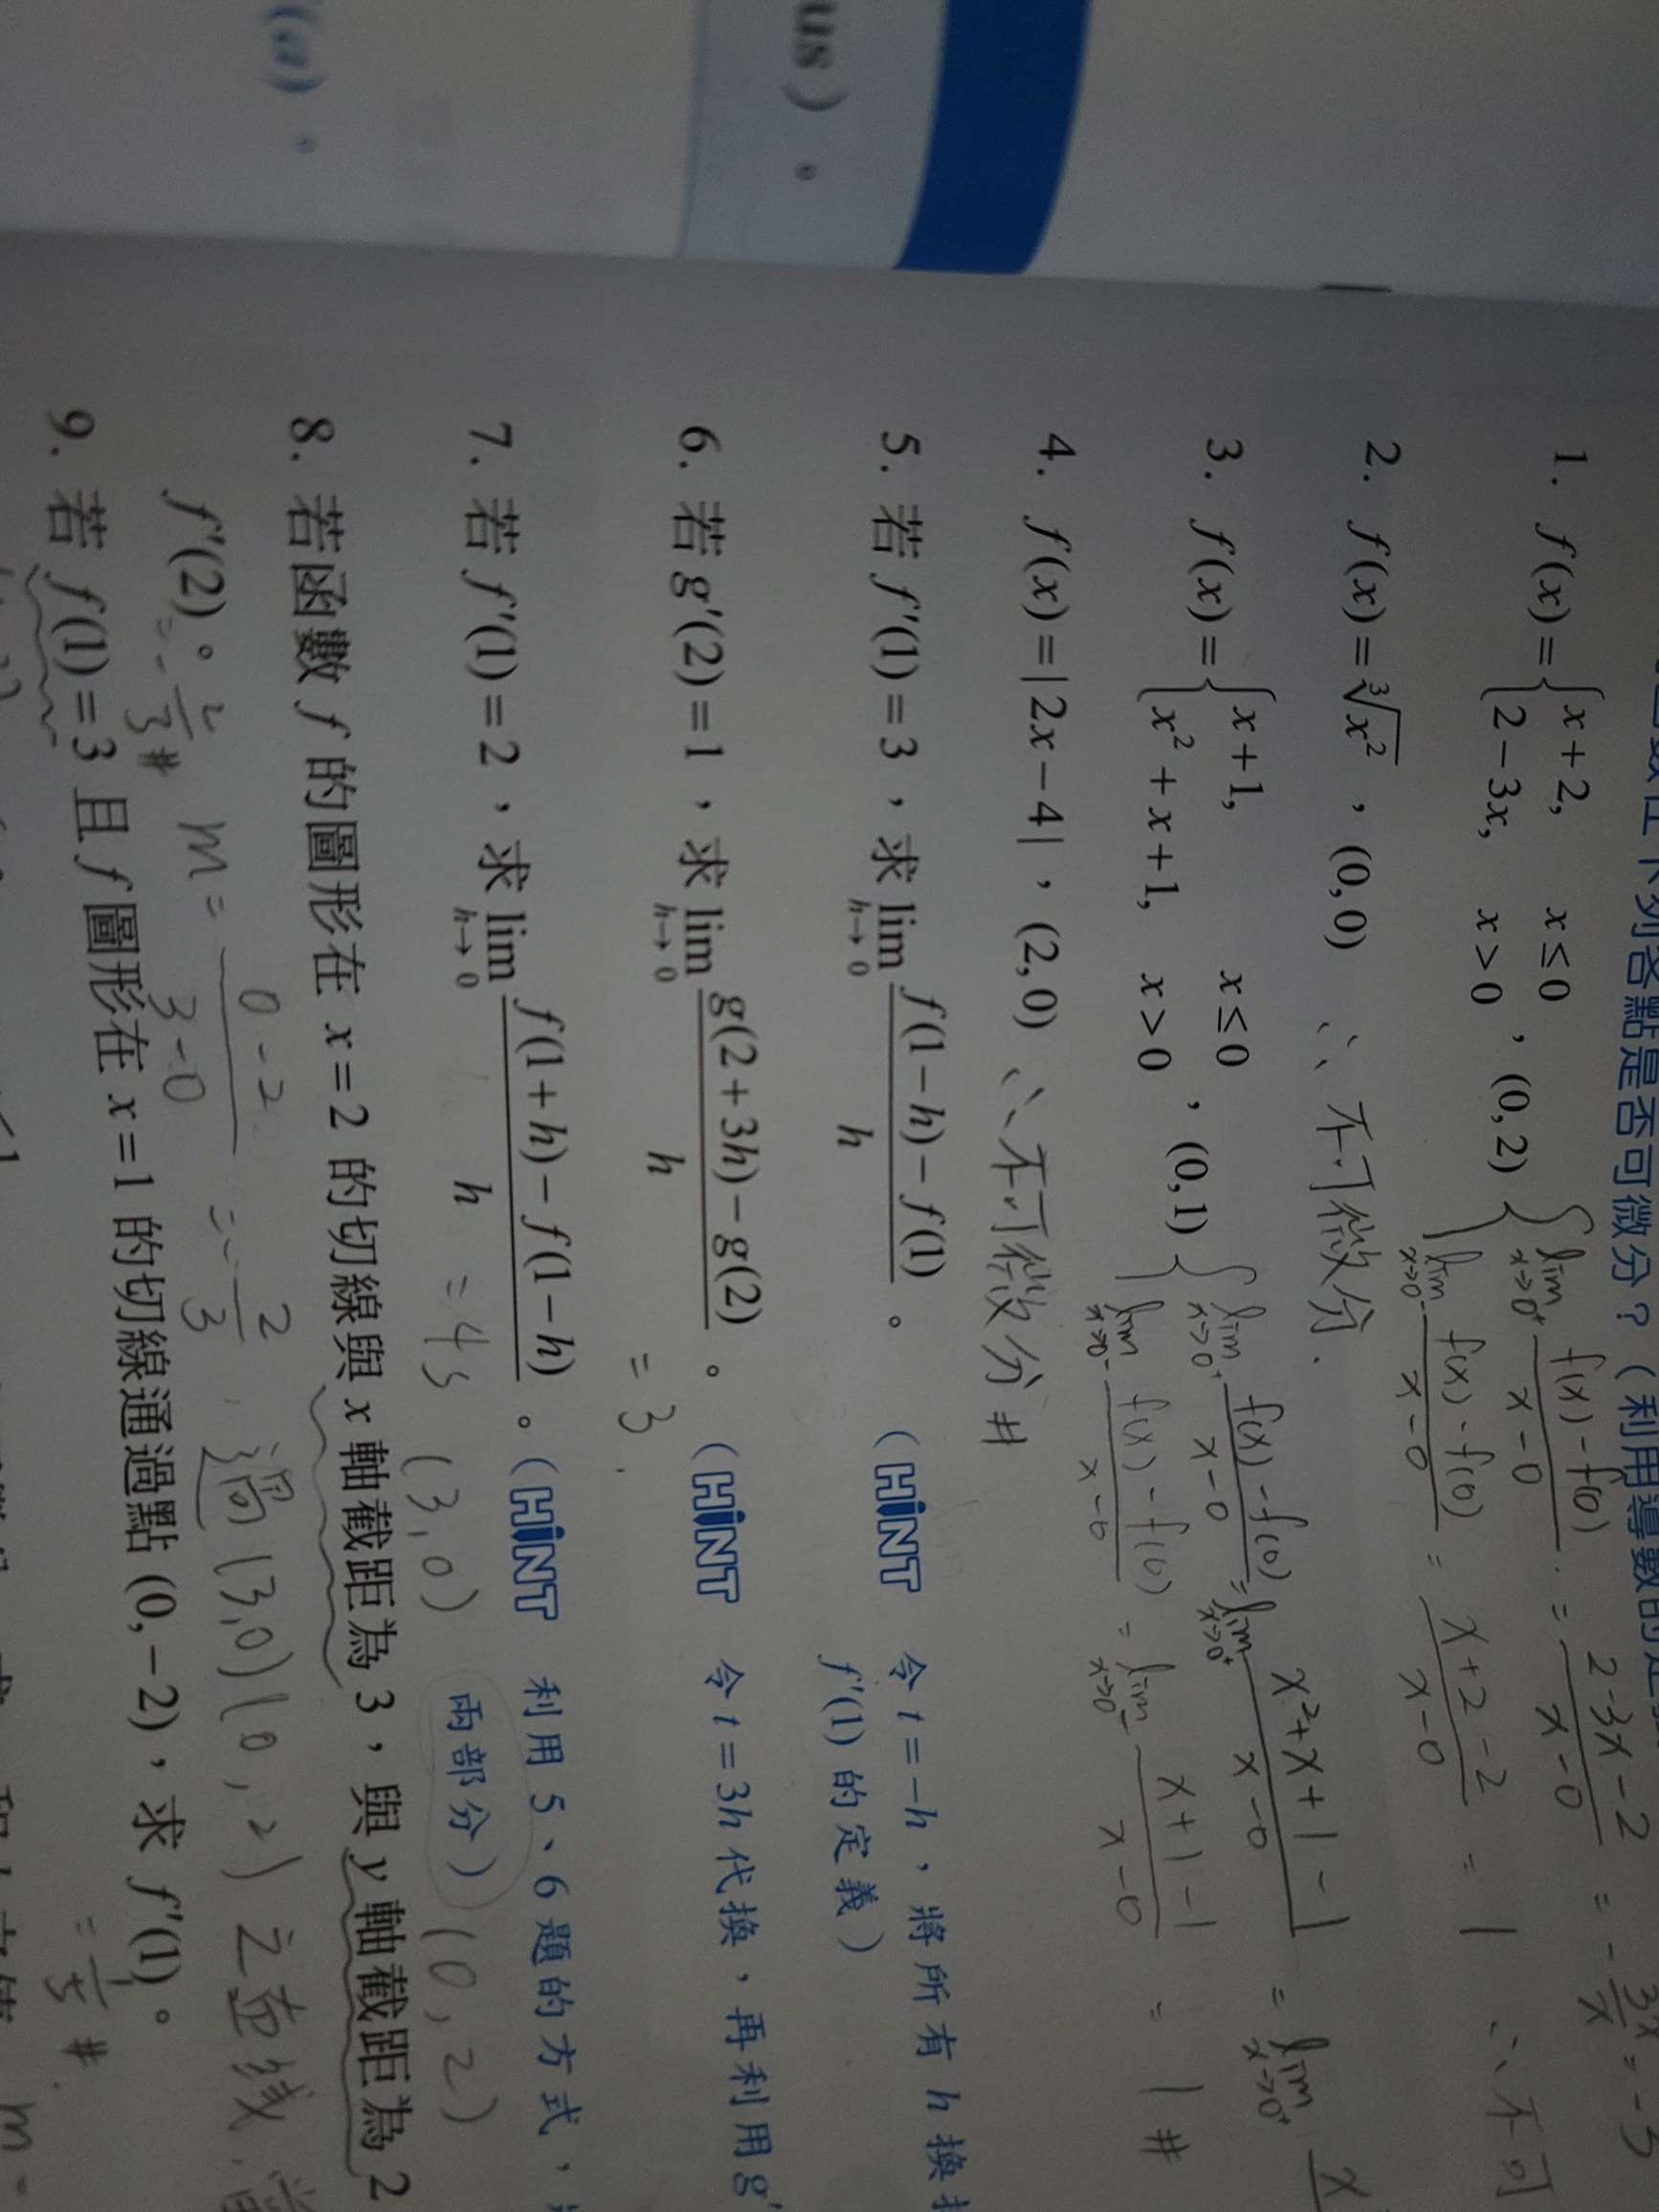 (a)。
us)。
1. f(x)={x+2, x≤0
2−3x, x>0 , (0,2) { lim x→0⁺ f(x)-f(0) / x-0 = 2-3x-2 / x-0 = -3x/x = -3
lim x→0⁻ f(x)-f(0) / x-0 = x+2-2 / x-0 = 1 ∴不可
2. f(x)=∛x², (0,0) ∴不可微分.
3. f(x)={x+1, x≤0
x²+x+1, x>0 , (0,1) { lim x→0⁺ f(x)-f(0) / x-0 = lim x→0⁺ x²+x+1-1 / x-0 = lim x→0⁺
lim x→0⁻ f(x)-f(0) / x-0 = lim x→0⁻ x+1-1 / x-0 = 1 #
4. f(x)=|2x−4|, (2,0) ∴不可微分 #
5. 若 f′(1)=3,求 lim h→0 f(1−h)−f(1) / h 。 (HiNT 令 t=−h,將所有 h 換
f′(1) 的定義)
6. 若 g′(2)=1,求 lim h→0 g(2+3h)−g(2) / h 。 (HiNT 令 t=3h 代換,再利用 g′
=3.
7. 若 f′(1)=2,求 lim h→0 f(1+h)−f(1−h) / h 。(HiNT 利用 5、6 題的方式,
兩部分)
(3,0) (0,2)
8. 若函數 f 的圖形在 x=2 的切線與 x 軸截距為 3,與 y 軸截距為 2
f′(2)。 =-2/3 # m= 0-2 / 3-0 =-2/3 過(3,0)(0,2)之直线
9. 若 f(1)=3 且 f 圖形在 x=1 的切線通過點 (0,−2),求 f′(1)。
m=